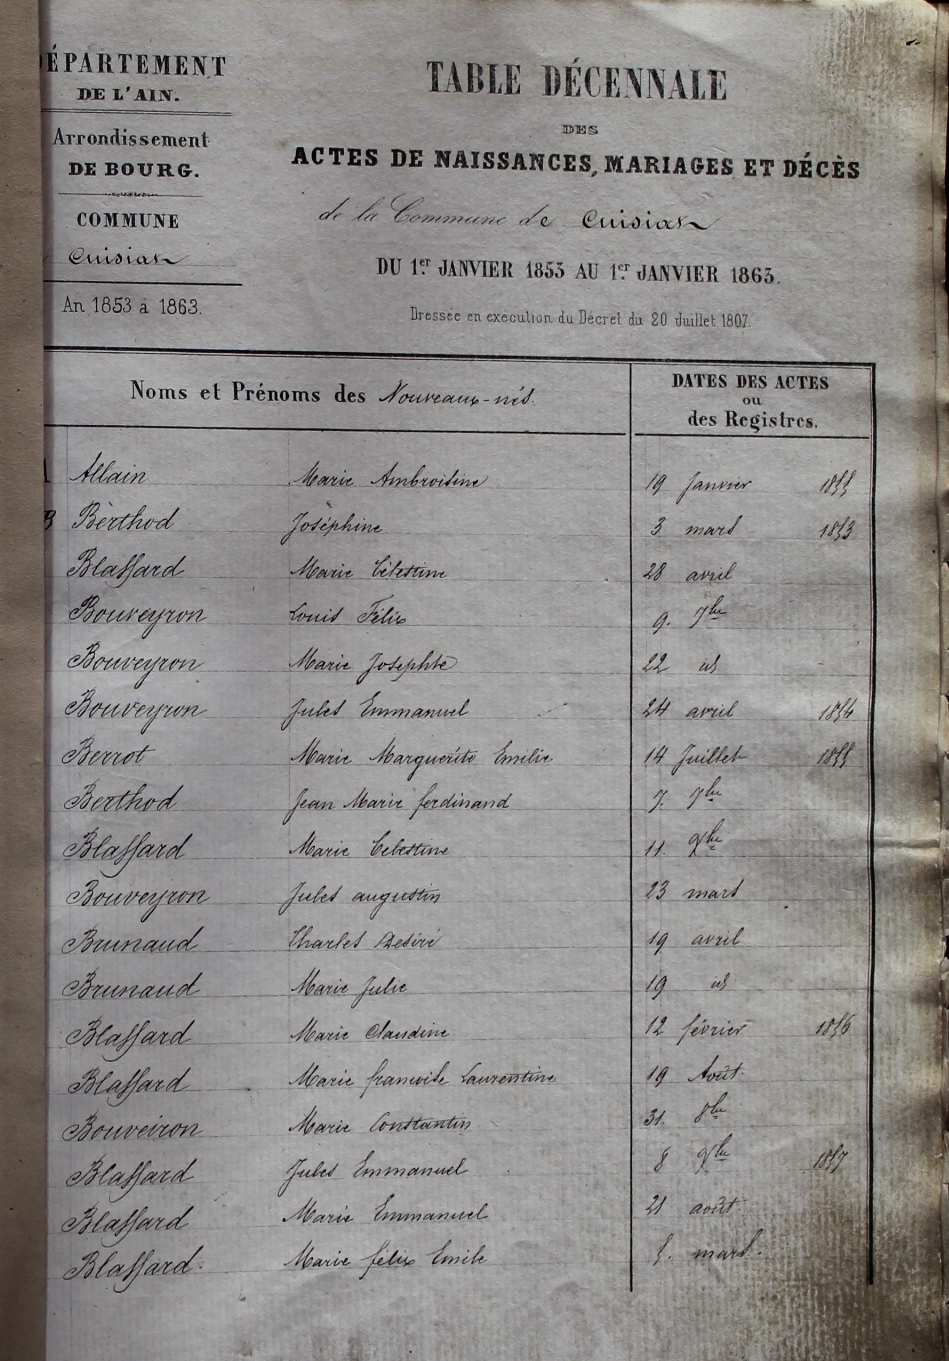 DÉPARTEMENT
DE L'AIN.
Arrondissement
DE BOURG.
COMMUNE
Cuisiat
An 1853 à 1863.
TABLE DÉCENNALE
DES
ACTES DE NAISSANCES, MARIAGES ET DÉCÈS
de la Commune de Cuisiat
DU 1er JANVIER 1853 AU 1er JANVIER 1863.
Dressée en exécution du Décret du 20 Juillet 1807.
Noms et Prénoms des Nouveaux-nés.
DATES DES ACTES
ou
des Registres.
Allain Marie Ambroisine 19 Janvier 1855
B Bèrthod Joséphine 3 mars 1853
Blassard Marie Célestine 28 avril
Bouveyron Louis Félix 9. 7bre
Bouveyron Marie Josephte 22 id
Bouveyron Jules Emmanuel 24 avril 1854
Berrot Marie Marguérite Emilie 14 Juillet 1855
Berthod Jean Marie ferdinand 7. 7bre
Blassard Marie Celestine 11. 9bre
Bouveyron Jules augustin 23 mars
Brunaud Charles Desiré 19 avril
Brunaud Marie Julie 19 id
Blassard Marie Claudine 12 février 1856
Blassard Marie francoise Laurentine 19 Août.
Bouveiron Marie Constantin 31. 8bre
Blassard Jules Emmanuel 8 9bre 1857
Blassard Marie Emmanuel 21 août
Blassard. Marie félix Emile 5. mars.